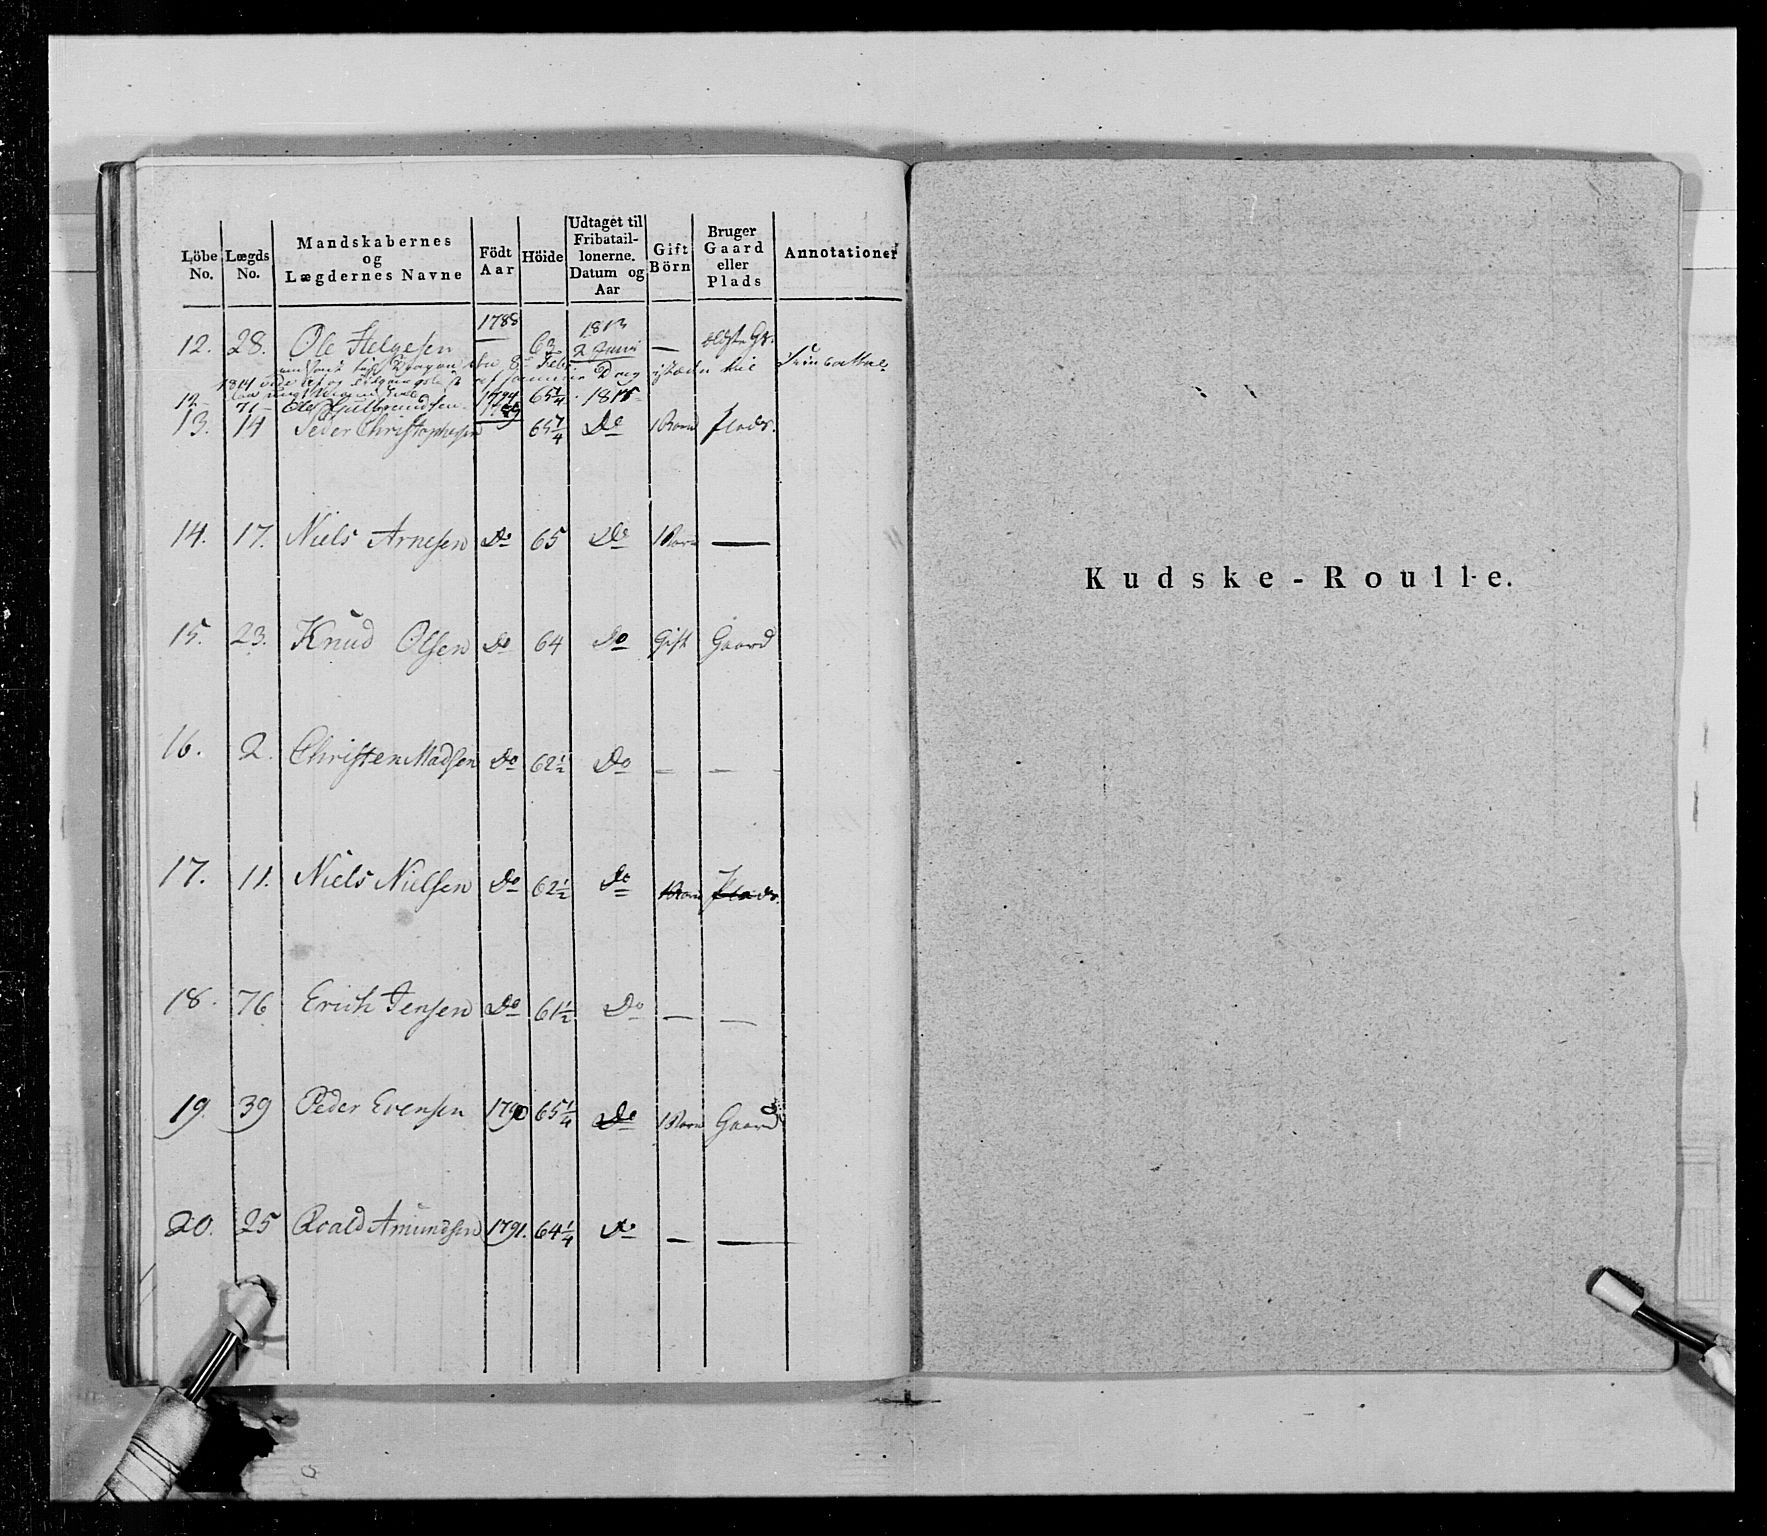 Löbe No. Lægds No. Mandskabernes og Lægdernes Navne Födt Aar Höide Udtaget til Fribataillonerne. Datum og Aar Gift Börn Bruger Gaard eller Plads Annotationer
12. 28. Ole Helgesen 1788 63 1813 2 Juni —
12 71 Ole 1794 65 1/4
13. 14 Peder Christophersen Do 1 Barn Plads.
14. 17. Niels Arnesen Do 65 Do 1 Barn —
15. 23. Knud Olsen Do 64 Do Gift Gaard
16. 2. Christen Madsen Do 62 1/2 Do — —
17. 11. Niels Nielsen Do 62 1/2 Do 1 Barn Plads.
18. 76 Erich Jensen Do 61 1/2 Do — —
19. 39 Peder Evensen 1790 65 1/4 Do 1 Barn Gaard
20. 25 Roald Amundsen 1791. 64 1/4 Do — —
Kudske-Roulle.